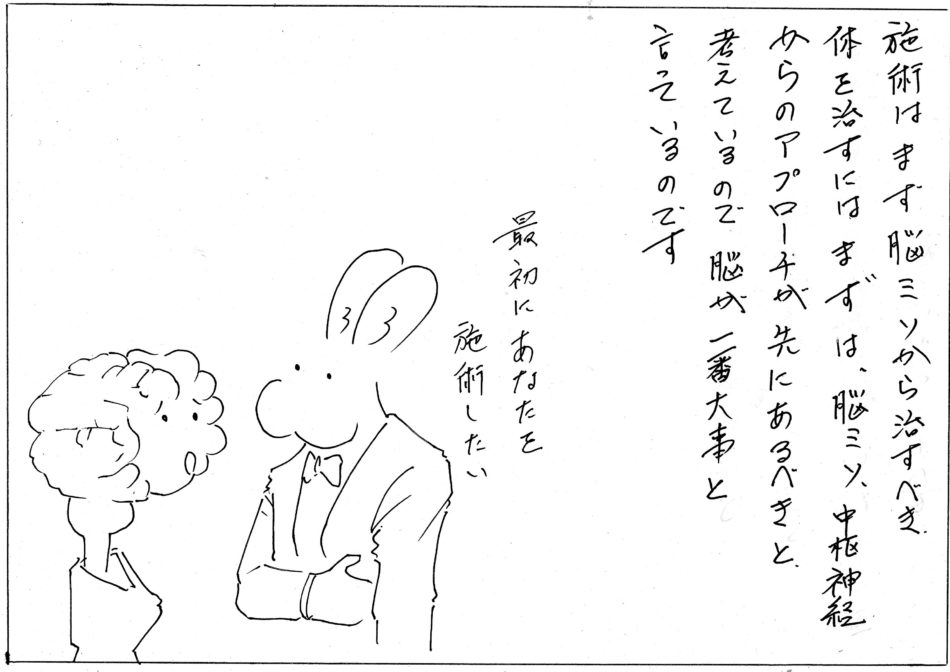 施術はまず脳ミソから治すべき
体を治すにはまずは、脳ミソ、中枢神経
からのアプローチが先にあるべきと
考えているので脳が一番大事と
言っているのです
最初にあなたを
施術したい